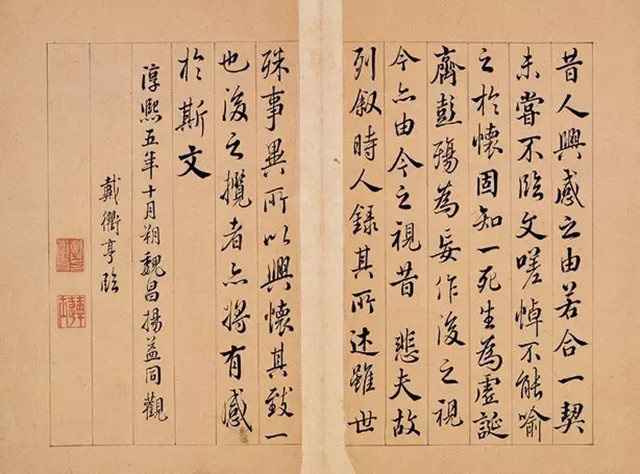 昔人興感之由若合一契
未嘗不臨文嗟悼不能喻
之於懷固知一死生為虛誕
齊彭殤為妄作後之視
今亦由今之視昔 悲夫故
列敘時人錄其所述雖世
殊事異所以興懷其致一
也後之攬者亦將有感
於斯文
淳熙五年十月朔魏昌揚益同觀
戴衢亨臨